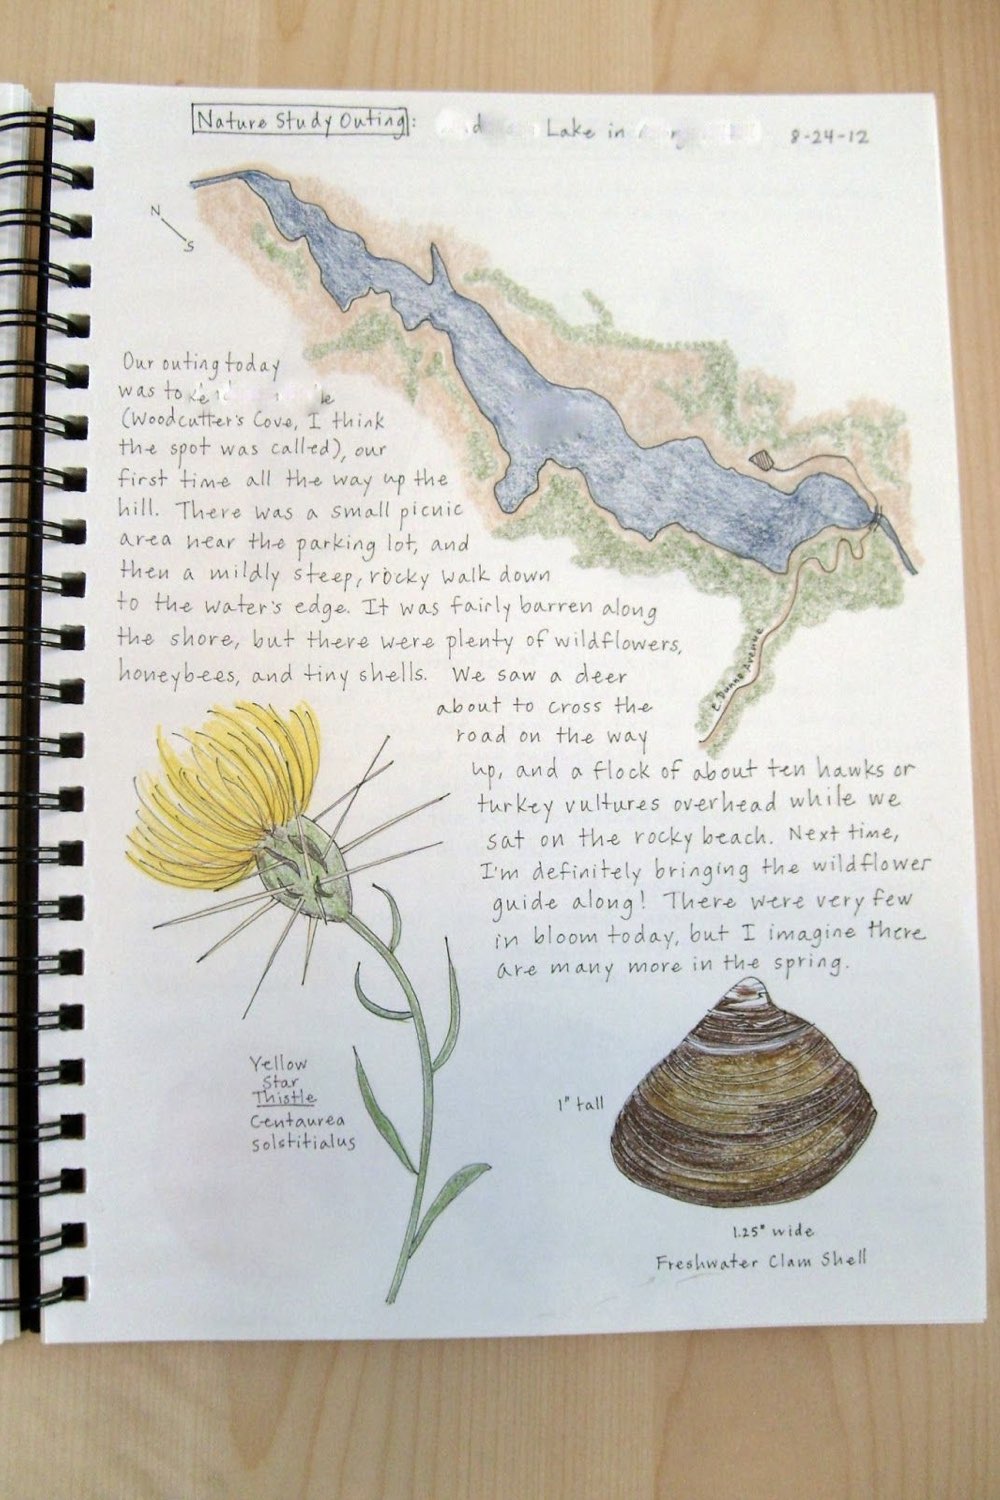 Nature Study Outing: Lake in 8-24-12
N
S
Our outing today
was to
(Woodcutter's Cove, I think
the spot was called), our
first time all the way up the
hill. There was a small picnic
area near the parking lot, and
then a mildly steep, rocky walk down
to the water's edge. It was fairly barren along
the shore, but there were plenty of wildflowers,
honeybees, and tiny shells. We saw a deer
about to cross the
road on the way
up, and a flock of about ten hawks or
turkey vultures overhead while we
sat on the rocky beach. Next time,
I'm definitely bringing the wildflower
guide along! There were very few
in bloom today, but I imagine there
are many more in the spring.
E. Dunne Avenue
Yellow
Star
Thistle
Centaurea
solstitialus
1" tall
1.25" wide
Freshwater Clam Shell